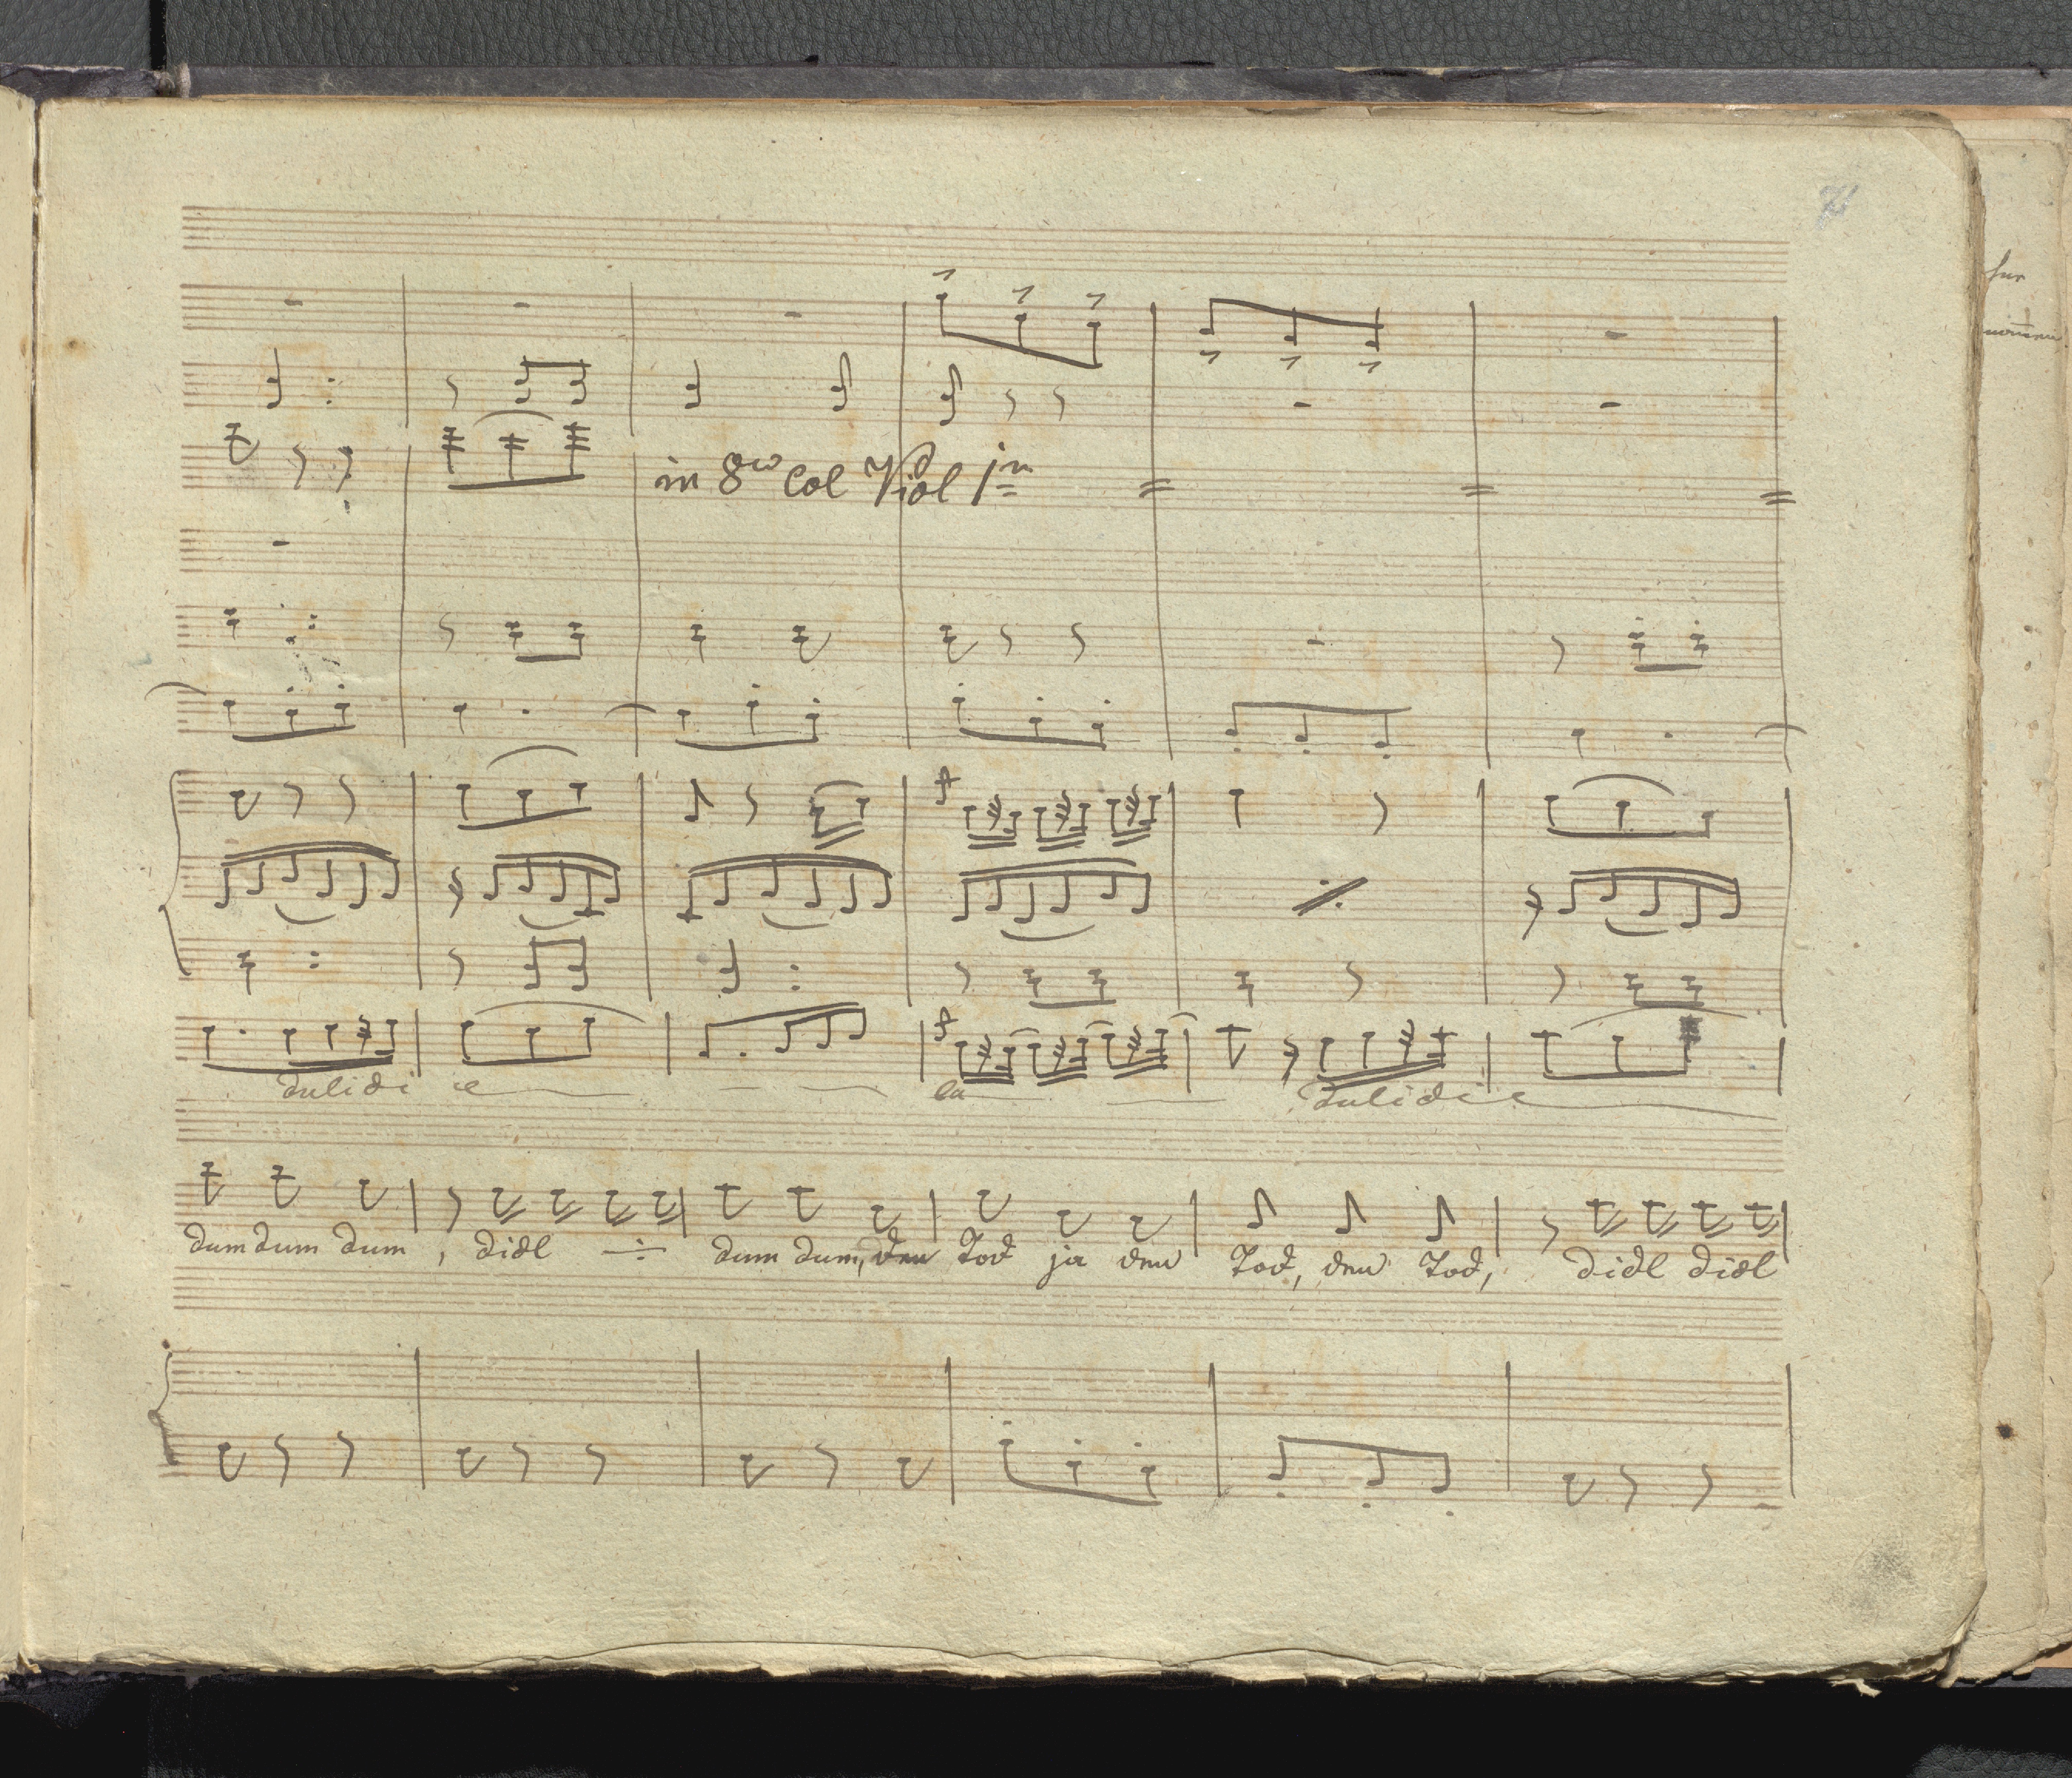 71
in 8vo Col Viol 1mo
dulidi e
la
dulidi e
dum dum dum, didl ÷ dum dum, den Tod ja den Tod, den Tod, didl didl